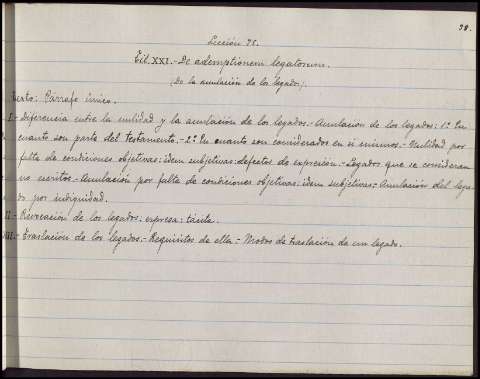 98.
Lección 98.
Tit. XXI.- De ademptionem legatorum.
(De la anulación de los legados).
Texto: Párrafo único.
I- Diferencia entre la nulidad y la anulación de los legados.- Anulación de los legados: 1º En
cuanto son parte del testamento.- 2º En cuanto son considerados en si mismos.- Nulidad por
falta de condiciones objetivas: idem subjetivas: defectos de expresión.- Legados que se consideran
no escritos.- Anulación por falta de condiciones objetivas: idem subjetivas.- Anulación del lega-
do por indignidad.
II- Revocación de los legados: expresa: tácita.
III- Traslación de los legados.- Requisitos de ella.- Modos de traslación de un legado.